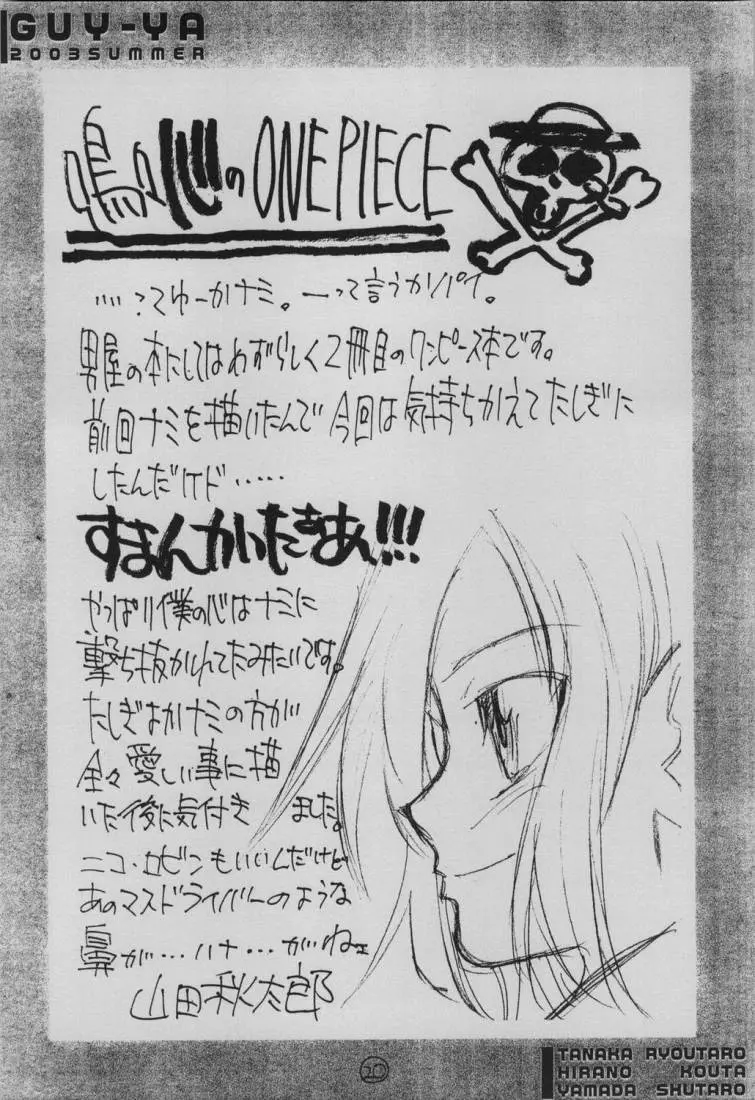 GUY-YA
2003SUMMER
のONE PIECE
‥‥‥?てゆーかナミ。ーって言うかパイ。
男屋の本にしてはめずらしく2冊目のワンピース本です。
前回ナミを描いたんで今回は気持ちかえてたしぎに
したんだけド……
すまんかいたきあん!!!
やっぱり僕の心はナミに
撃ち抜かれてたみたいです。
たしぎよかナミの方が
全々愛しい事に描
いた後に気付き ました。
ニコ・ロビンもいいんだけど
あのマスドライバーのような
鼻が…ハナ…がねェ
山田秋太郎
20
TANAKA RYOUTARO
HIRANO KOUTA
YAMADA SHUTARO